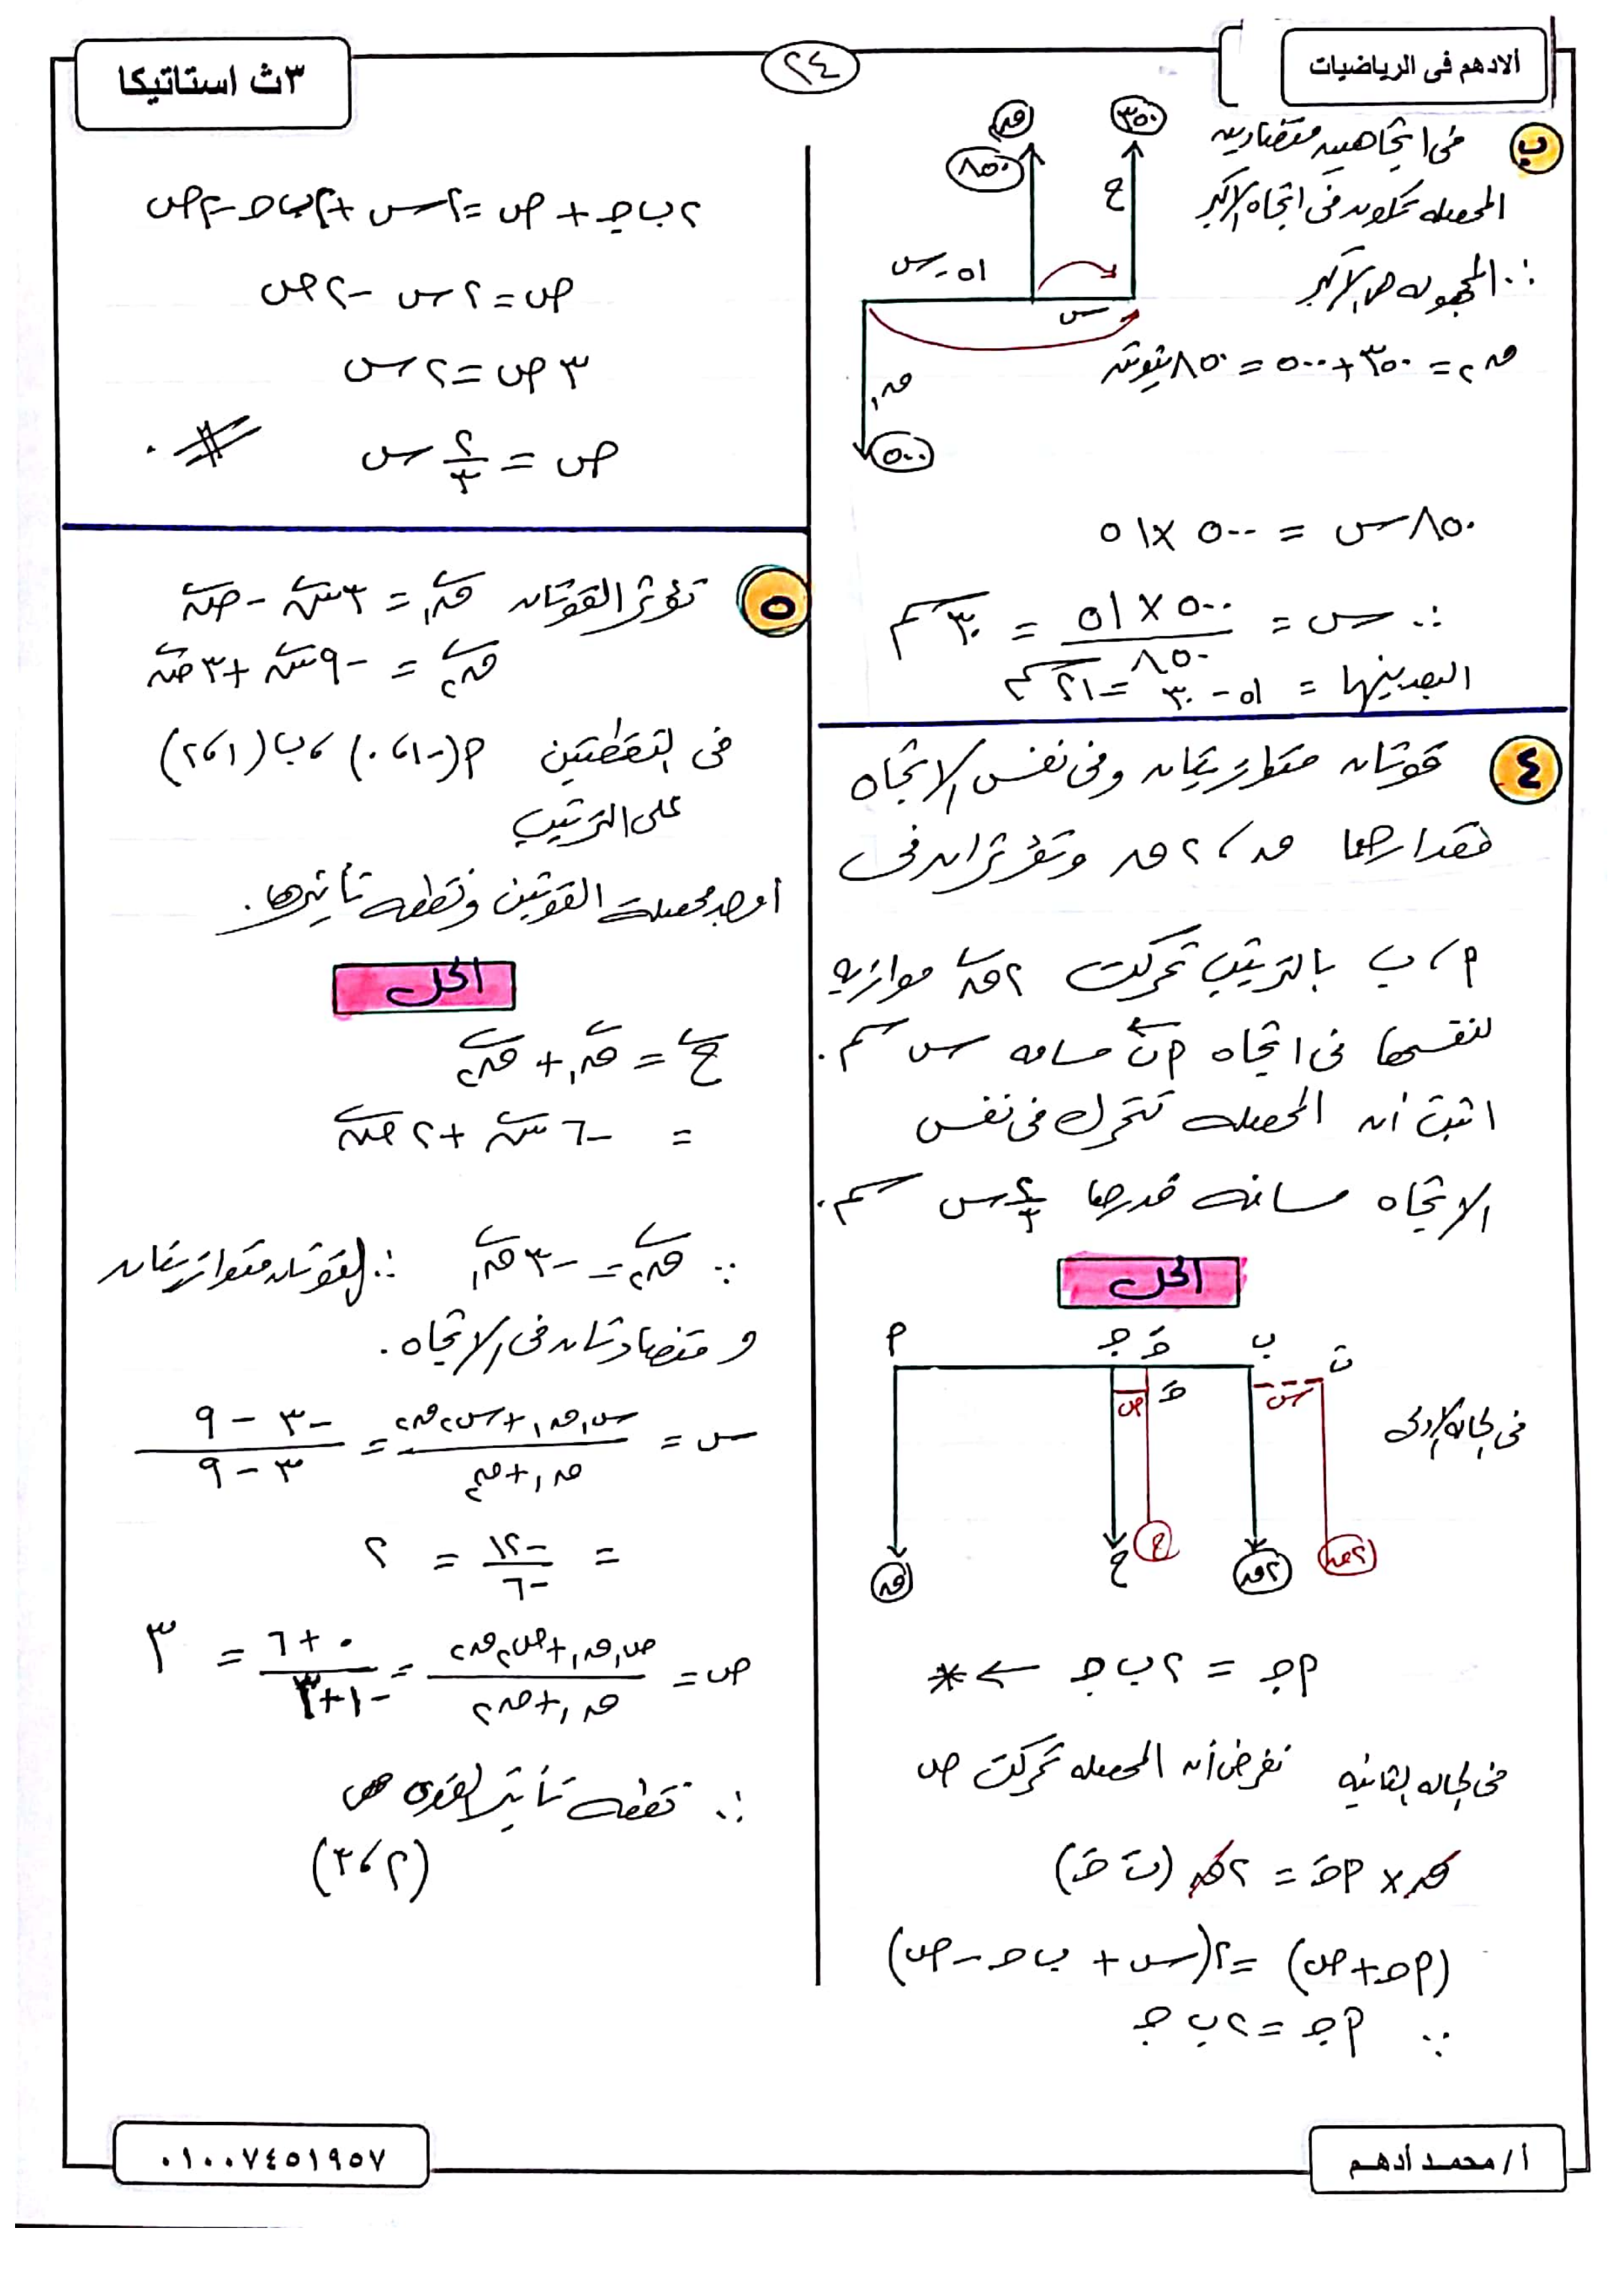 الادهم فى الرياضيات
٢٤
٣ث استاتيكا
ب
فى اتجاهين متضادين
المحصله تكون فى اتجاه الاكبر
∴ المجهوله هى الاكبر
ق٢ = ٣٥٠ + ٥٠٠ = ٨٥٠ نيوتن
٣٥٠
ق٢
٨٥٠
ح
٥١ - س
س
ق١
٥٠٠
٨٥٠ س = ٥٠٠ × ٥١
∴ س = ٥٠٠ × ٥١ / ٨٥٠ = ٣٠ سم
البعد بينهما = ٥١ - ٣٠ = ٢١ سم
٤
قوتان متوازيتان وفى نفس الاتجاه
مقدارهما ق ، ٢ق وتؤثران فى
أ ، ب بالترتيب تحركت ٢ق موازيه
لنفسها فى اتجاه أب مسافه س سم.
اثبت أن المحصله تتحرك فى نفس
الاتجاه مسافه قدرها ٢/٣ س سم.
الحل
أ ج جَ ب بَ
جَ
ص س
فى الحاله الاولى
ق ح ح ٢ق ٢ق
أج = ٢ ب ج ← *
فى الحاله الثانيه نفرض أن المحصله تحركت ص
ق × أجَ = ٢ق (بَ جَ)
(أج + ص) = ٢(س + ب ج - ص)
∵ أج = ٢ ب ج
٢ ب ج + ص = ٢س + ٢ب ج - ٢ص
ص = ٢ س - ٢ ص
٣ ص = ٢ س
ص = ٢/٣ س #
٥
تؤثر القوتان ق١ = ٣ س - ص
ق٢ = -٩ س + ٣ ص
فى النقطتين أ(-١ ، ٠) ، ب(١ ، ٢)
على الترتيب
أوجد محصلة القوتين ونقطه تأثيرها.
الحل
ح = ق١ + ق٢
= -٦ س + ٢ ص
∵ ق٢ = -٣ ق١ ∴ القوتان متوازيتان
و متضادتان فى الاتجاه.
س = س١ ق١ + س٢ ق٢ / ق١ + ق٢ = -٣ - ٩ / ٣ - ٩
= -١٢ / -٦ = ٢
ص = ص١ ق١ + ص٢ ق٢ / ق١ + ق٢ = ٠ + ٦ / -١ + ٣ = ٣
∴ نقطه تأثير القوى هى
(٢ ، ٣)
أ / محمد أدهم
٠١٠٠٧٤٥١٩٥٧